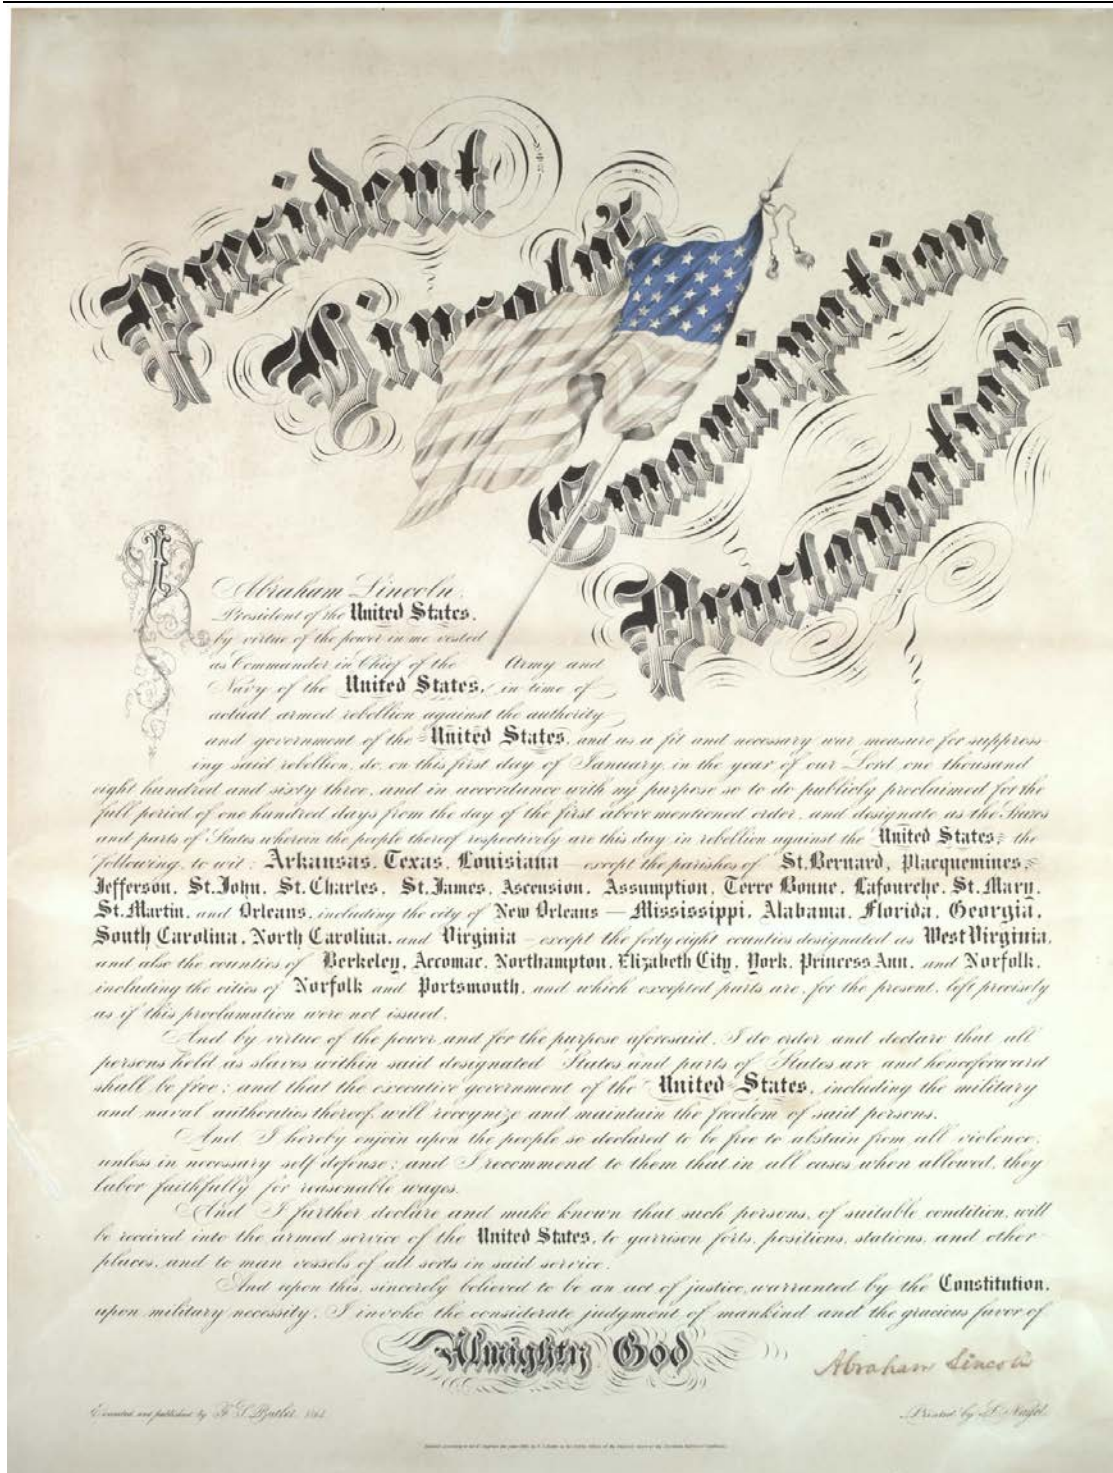 President
Lincoln's
Emancipation
Proclamation,
I
Abraham Lincoln,
President of the United States,
by virtue of the power in me vested
as Commander in Chief of the Army and
Navy of the United States, in time of
actual armed rebellion against the authority
and government of the United States, and as a fit and necessary war measure for suppress
ing said rebellion, do, on this first day of January, in the year of our Lord one thousand
eight hundred and sixty three, and in accordance with my purpose so to do publicly proclaimed for the
full period of one hundred days from the day of the first above mentioned order, and designate as the States
and parts of States wherein the people thereof respectively are this day in rebellion against the United States, the
following, to wit: Arkansas, Texas, Louisiana – except the parishes of St. Bernard, Placquemines,
Jefferson, St. John, St. Charles, St. James, Ascension, Assumption, Terre Bonne, Lafourche, St. Mary,
St. Martin, and Orleans, including the city of New Orleans — Mississippi, Alabama, Florida, Georgia,
South Carolina, North Carolina, and Virginia – except the forty eight counties designated as West Virginia,
and also the counties of Berkeley, Accomac, Northampton, Elizabeth City, York, Princess Ann, and Norfolk,
including the cities of Norfolk and Portsmouth, and which excepted parts are, for the present, left precisely
as if this proclamation were not issued.
And by virtue of the power and for the purpose aforesaid, I do order and declare that all
persons held as slaves within said designated States and parts of States are and henceforward
shall be free; and that the executive government of the United States, including the military
and naval authorities thereof, will recognize and maintain the freedom of said persons.
And I hereby enjoin upon the people so declared to be free to abstain from all violence,
unless in necessary self defense; and I recommend to them that in all cases when allowed, they
labor faithfully for reasonable wages.
And I further declare and make known that such persons, of suitable condition, will
be received into the armed service of the United States, to garrison forts, positions, stations, and other
places, and to man vessels of all sorts in said service.
And upon this, sincerely believed to be an act of justice, warranted by the Constitution,
upon military necessity, I invoke the considerate judgment of mankind and the gracious favor of
Almighty God
Abraham Lincoln
Executed and published by F. S. Butler
Printed by L. Nagel.